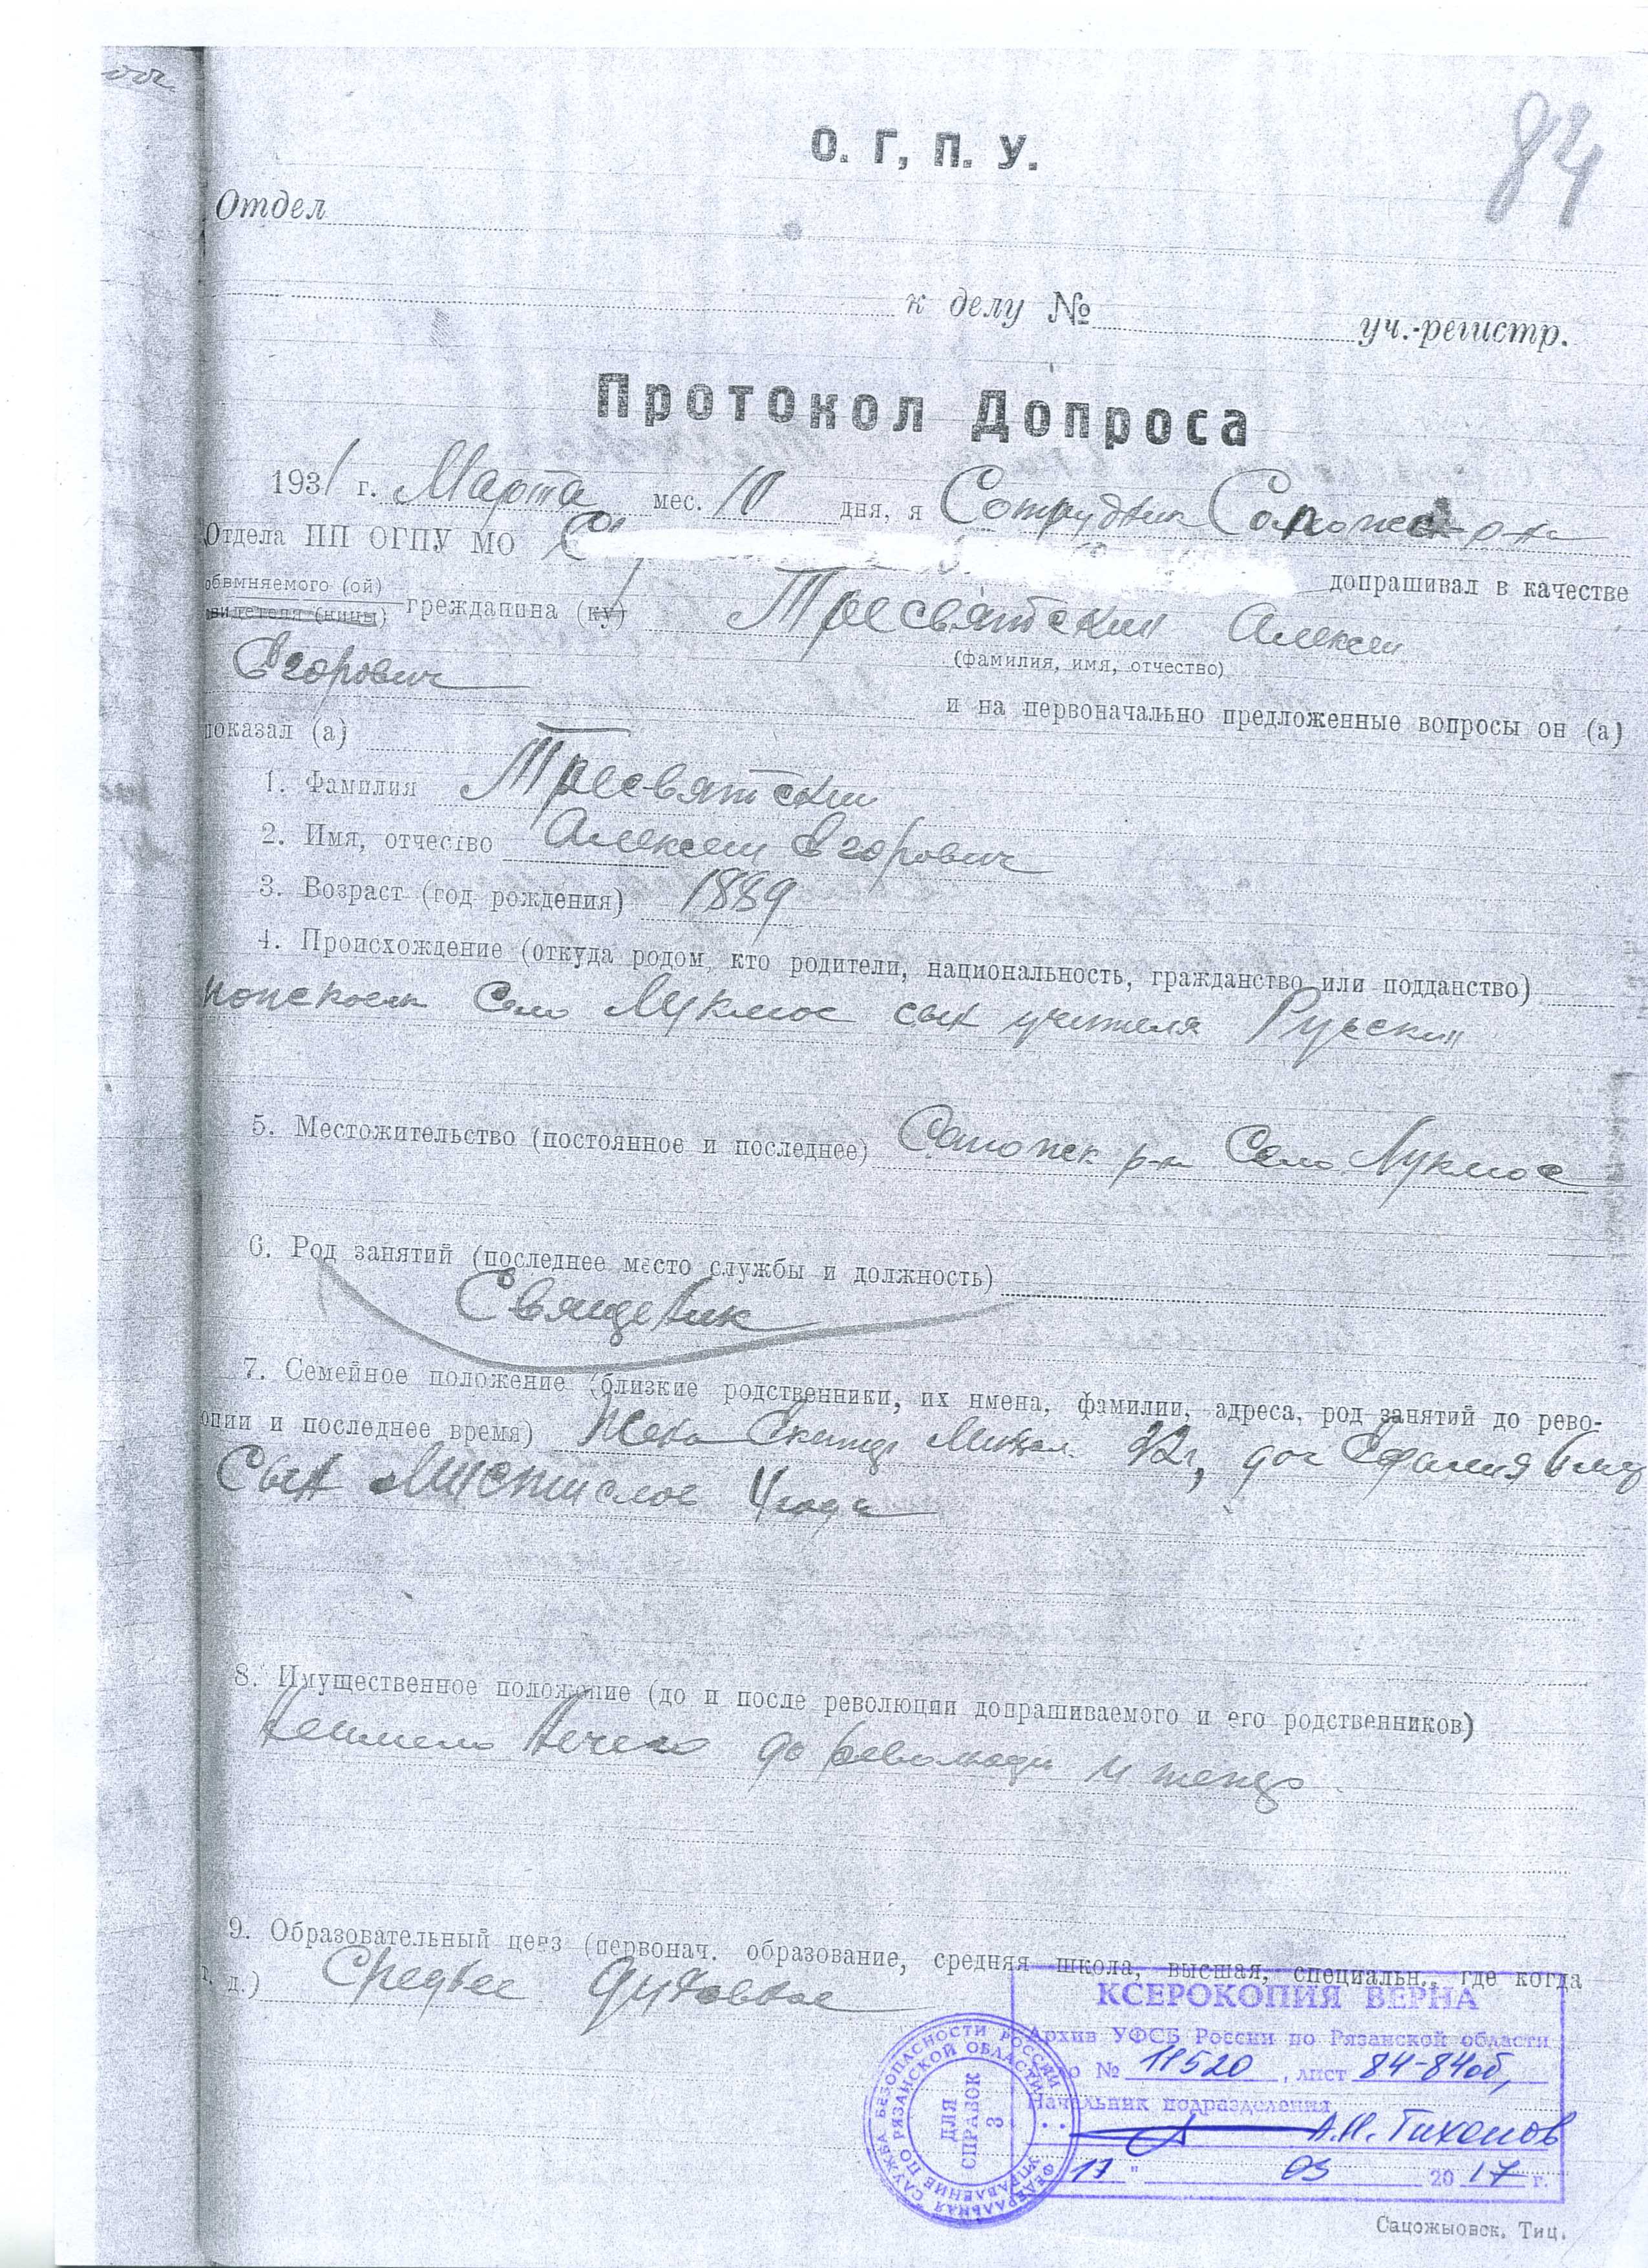 84
О. Г, П. У.
Отдел
к делу № уч.-регистр.
Протокол Допроса
1931 г. Марта мес. 10 дня, я Сотрудник Сапожк р-на
Отдела ПП ОГПУ МО допрашивал в качестве
обвмняемого (ой)
свидетеля (ницы) грежданина (ку) Тресвятский Алексей
(фамилия, имя, отчество)
Егорович и на первоначально предложенные вопросы он (а)
показал (а)
1. Фамилия Тресвятский
2. Имя, отчество Алексей Егорович
3. Возраст (год рождения) 1889
4. Происхождение (откуда родом, кто родители, национальность, гражданство или подданство)
Село Лукмос сын учителя Русский
5. Местожительство (постоянное и последнее) Сапожк р-н Село Лукмос
6. Род занятий (последнее место службы и должность)
Священик
7. Семейное положение (близкие родственники, их имена, фамилии, адреса, род занятий до рево-
юции и последнее время) Жена 32 г, доч
Сын 4 года
8. Имущественное положение (до и после революции допрашиваемого и его родственников)
Неимело нечего до революци и теперь
9. Образовательный ценз (первонач. образование, средняя школа, высшая, специальн., где когда
т. д.) Среднее Духовное
КСЕРОКОПИЯ ВЕРНА
Архив УФСБ России по Рязанской области
№ 11520, лист 84-84об,
Начальник подразделения
А.Н. Тихонов
17 " 03 2017 г.
ФЕДЕРАЛЬНАЯ СЛУЖБА БЕЗОПАСНОСТИ РОССИИ
УПРАВЛЕНИЕ ПО РЯЗАНСКОЙ ОБЛАСТИ
ДЛЯ
СПРАВОК
3
Сапожковск. Тип.